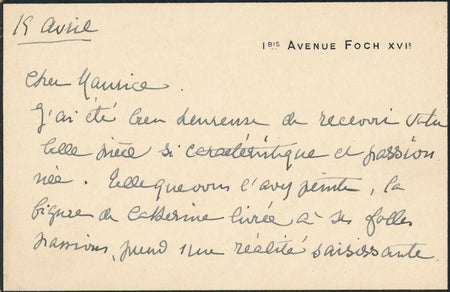 15 Avril
1BIS AVENUE FOCH XVIE
Cher Maurice.
J'ai été bien heureuse de recevoir votre
belle pièce si caractéristique et passion
née. Telle que vous l'avez peinte, la
figure de Catherine livrée à ses folles
passions, prend une réalité saisissante.